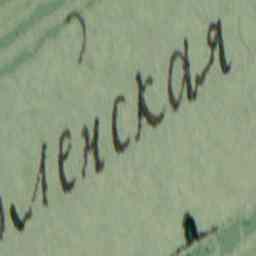 ленская